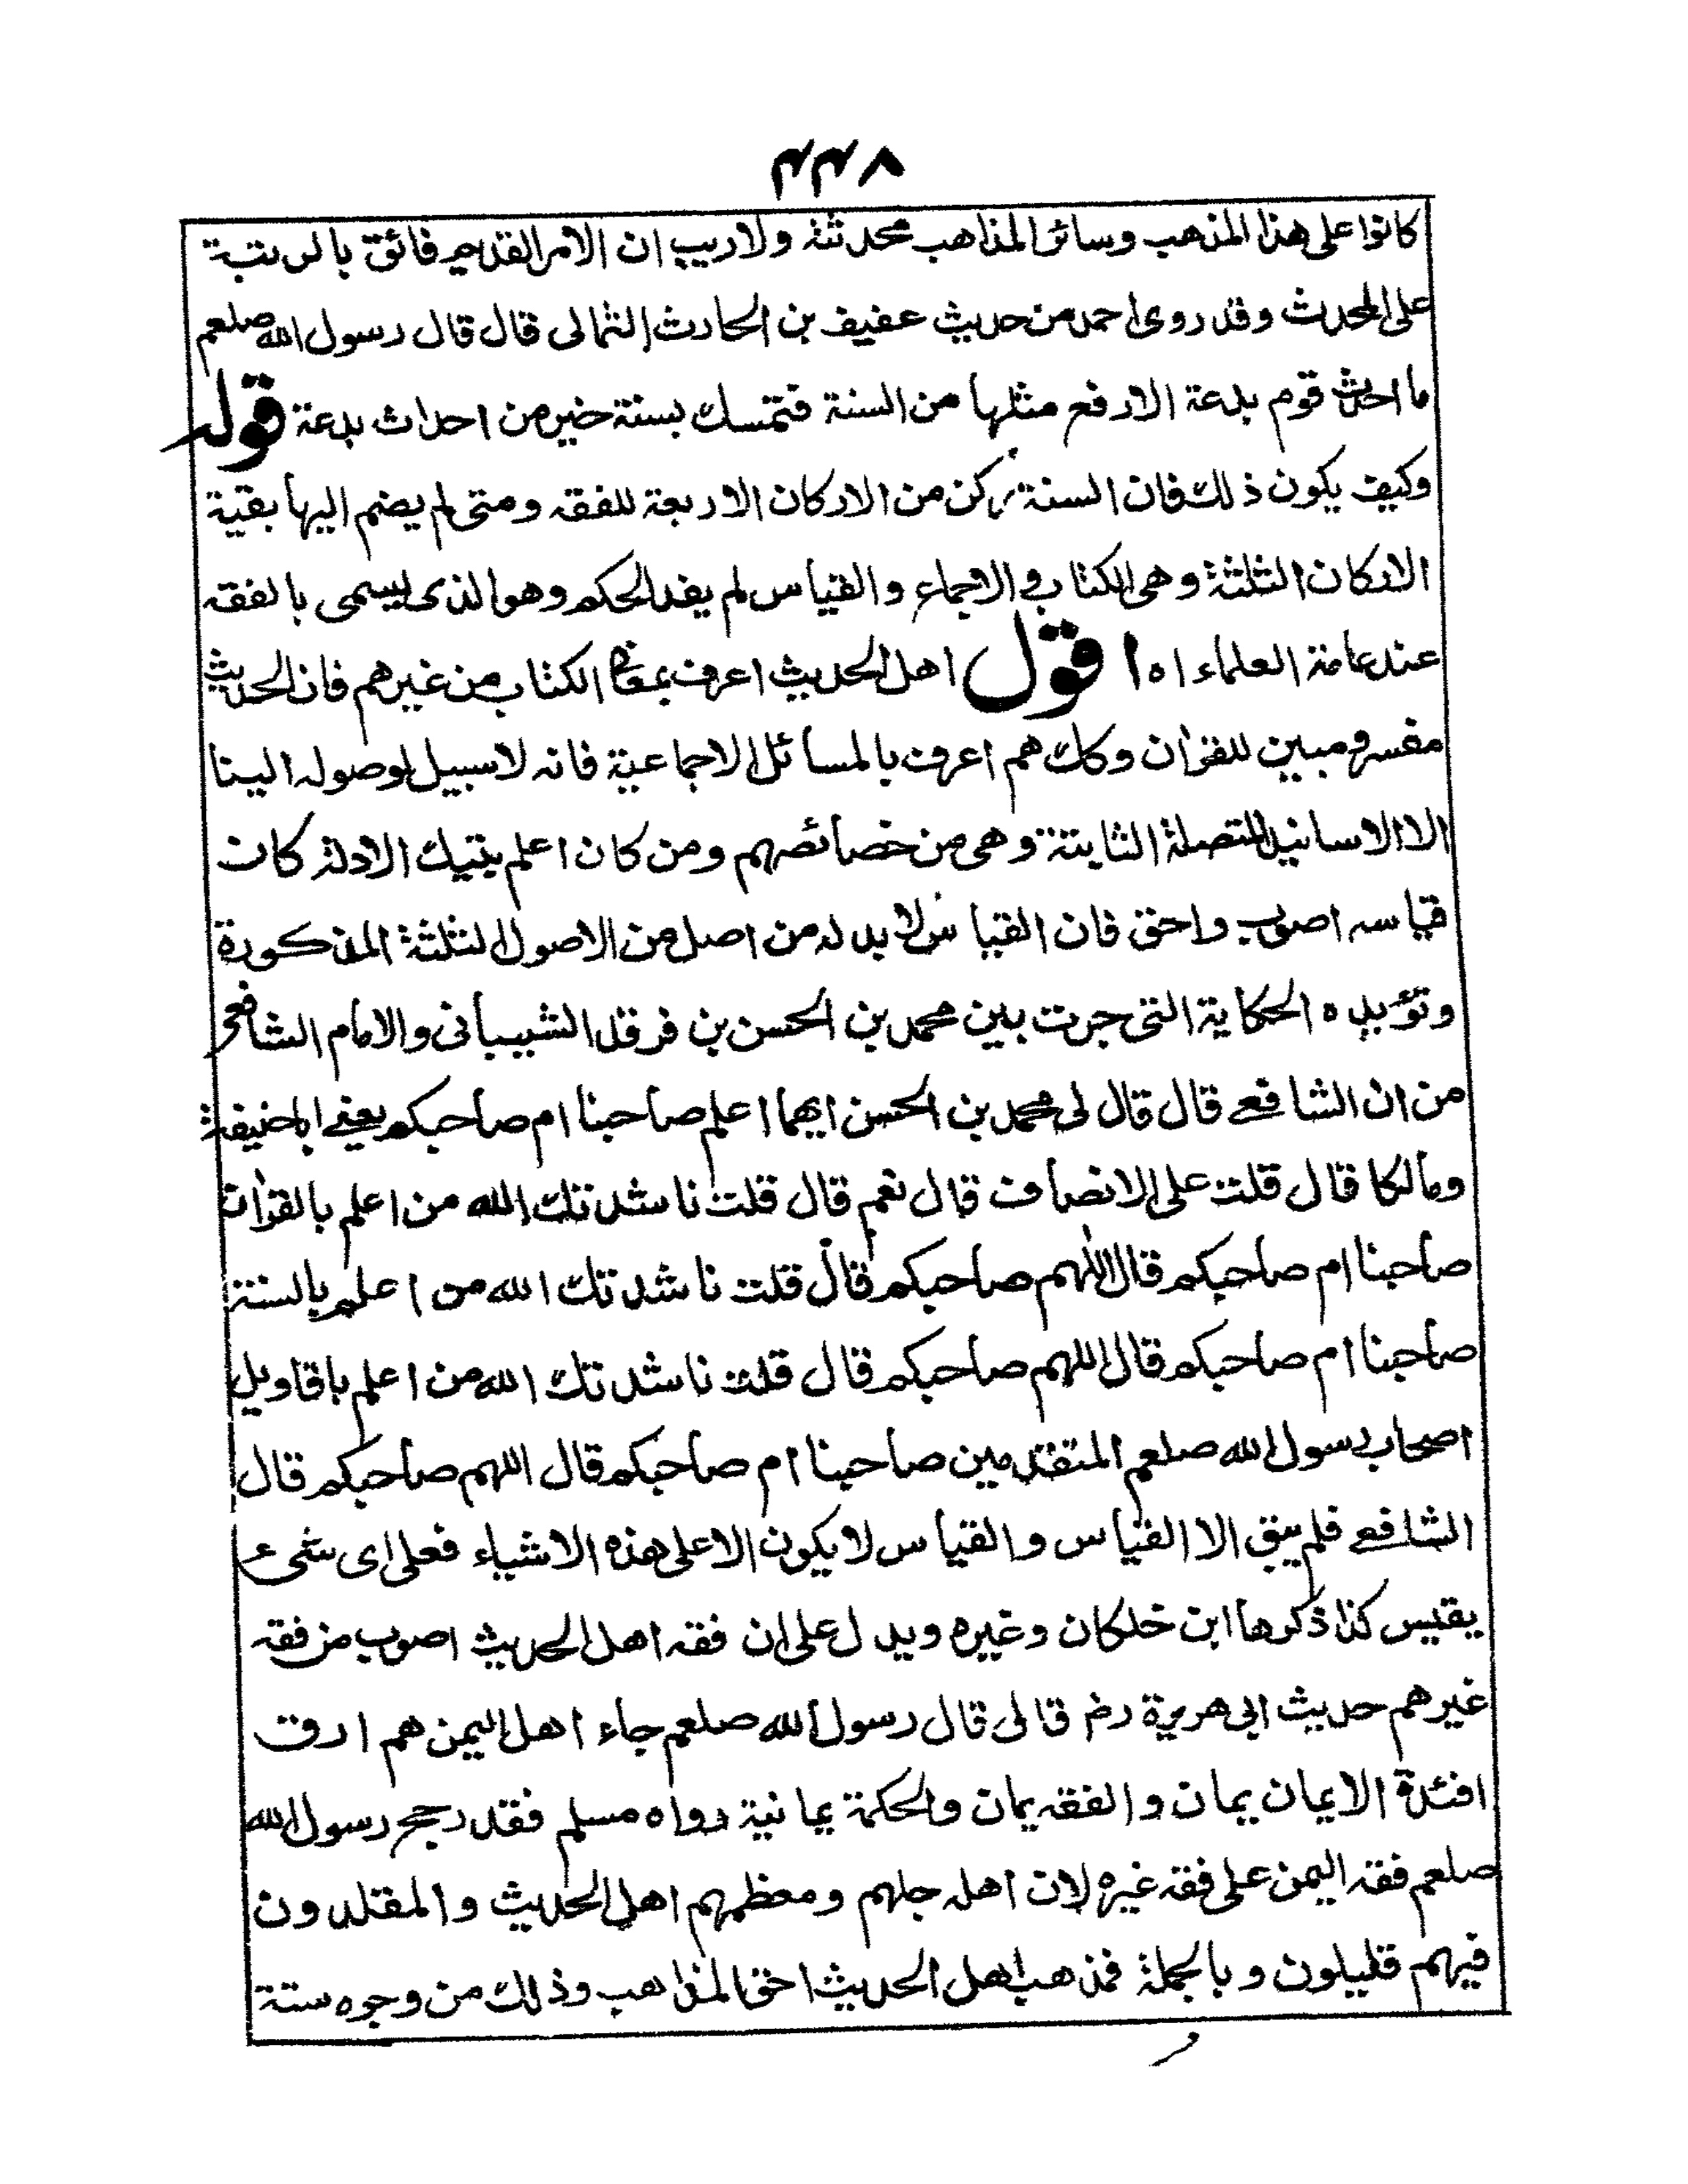 ٤٤٧
كانوا على هذا المذهب وسائر المذاهب محدثة ولا ريب ان الامر القديم فائق بالرتبة
على المحدث وقد روى احمد من حديث عفيف بن الحارث الثمالى قال قال رسول الله صلعم
ما احدث قوم بدعة الا رفع مثلها من السنة فتمسك بسنة خير من احداث بدعة قوله
وكيف يكون ذلك فان السنة ركن من الاركان الاربعة للفقه ومتى لم يضم اليها بقية
الاركان الثلثة وهى الكتاب والاجماع والقياس لم يفد الحكم وهو الذى يسمى بالفقه
عند عامة العلماء اه اقول اهل الحديث اعرف بمعانى الكتاب من غيرهم فان الحديث
مفسر ومبين للقران وكك هم اعرف بالمسائل الاجماعية فانه لا سبيل لوصوله الينا
الا الاسانيد المتصلة الثابتة وهى من خصائصهم ومن كان اعلم بتيك الادلة كان
قياسه اصوب واحق فان القياس لا بد له من اصل من الاصول الثلثة المذكورة
وتؤيده الحكاية التى جرت بين محمد بن الحسن بن فرقد الشيبانى والامام الشافعى
من ان الشافعے قال قال لى محمد بن الحسن ايهما اعلم صاحبنا ام صاحبكم يعنے اباحنيفة
ومالكا قال قلت على الانصاف قال نعم قال قلت ناشدتك الله من اعلم بالقران
صاحبنا ام صاحبكم قال اللهم صاحبكم قال قلت ناشدتك الله من اعلم بالسنة
صاحبنا ام صاحبكم قال اللهم صاحبكم قال قلت ناشدتك الله من اعلم باقاويل
اصحاب رسول الله صلعم المتقدمين صاحبنا ام صاحبكم قال اللهم صاحبكم قال
الشافعے فلم يبق الا القياس والقياس لا يكون الا على هذه الاشياء فعلى اى شىء
يقيس كذا ذكرها ابن خلكان وغيره ويدل على ان فقه اهل الحديث اصوب من فقه
غيرهم حديث ابى هريرة رض قال قال رسول الله صلعم جاء اهل اليمن هم ارق
افئدة الايمان يمان والفقه يمان والحكمة يمانية رواه مسلم فقد رجح رسول الله
صلعم فقه اليمن على فقه غيره لان اهله جلهم ومعظمهم اهل الحديث والمقلدون
فيهم قليلون وبالجملة فمذهب اهل الحديث احق المذاهب وذلك من وجوه ستة